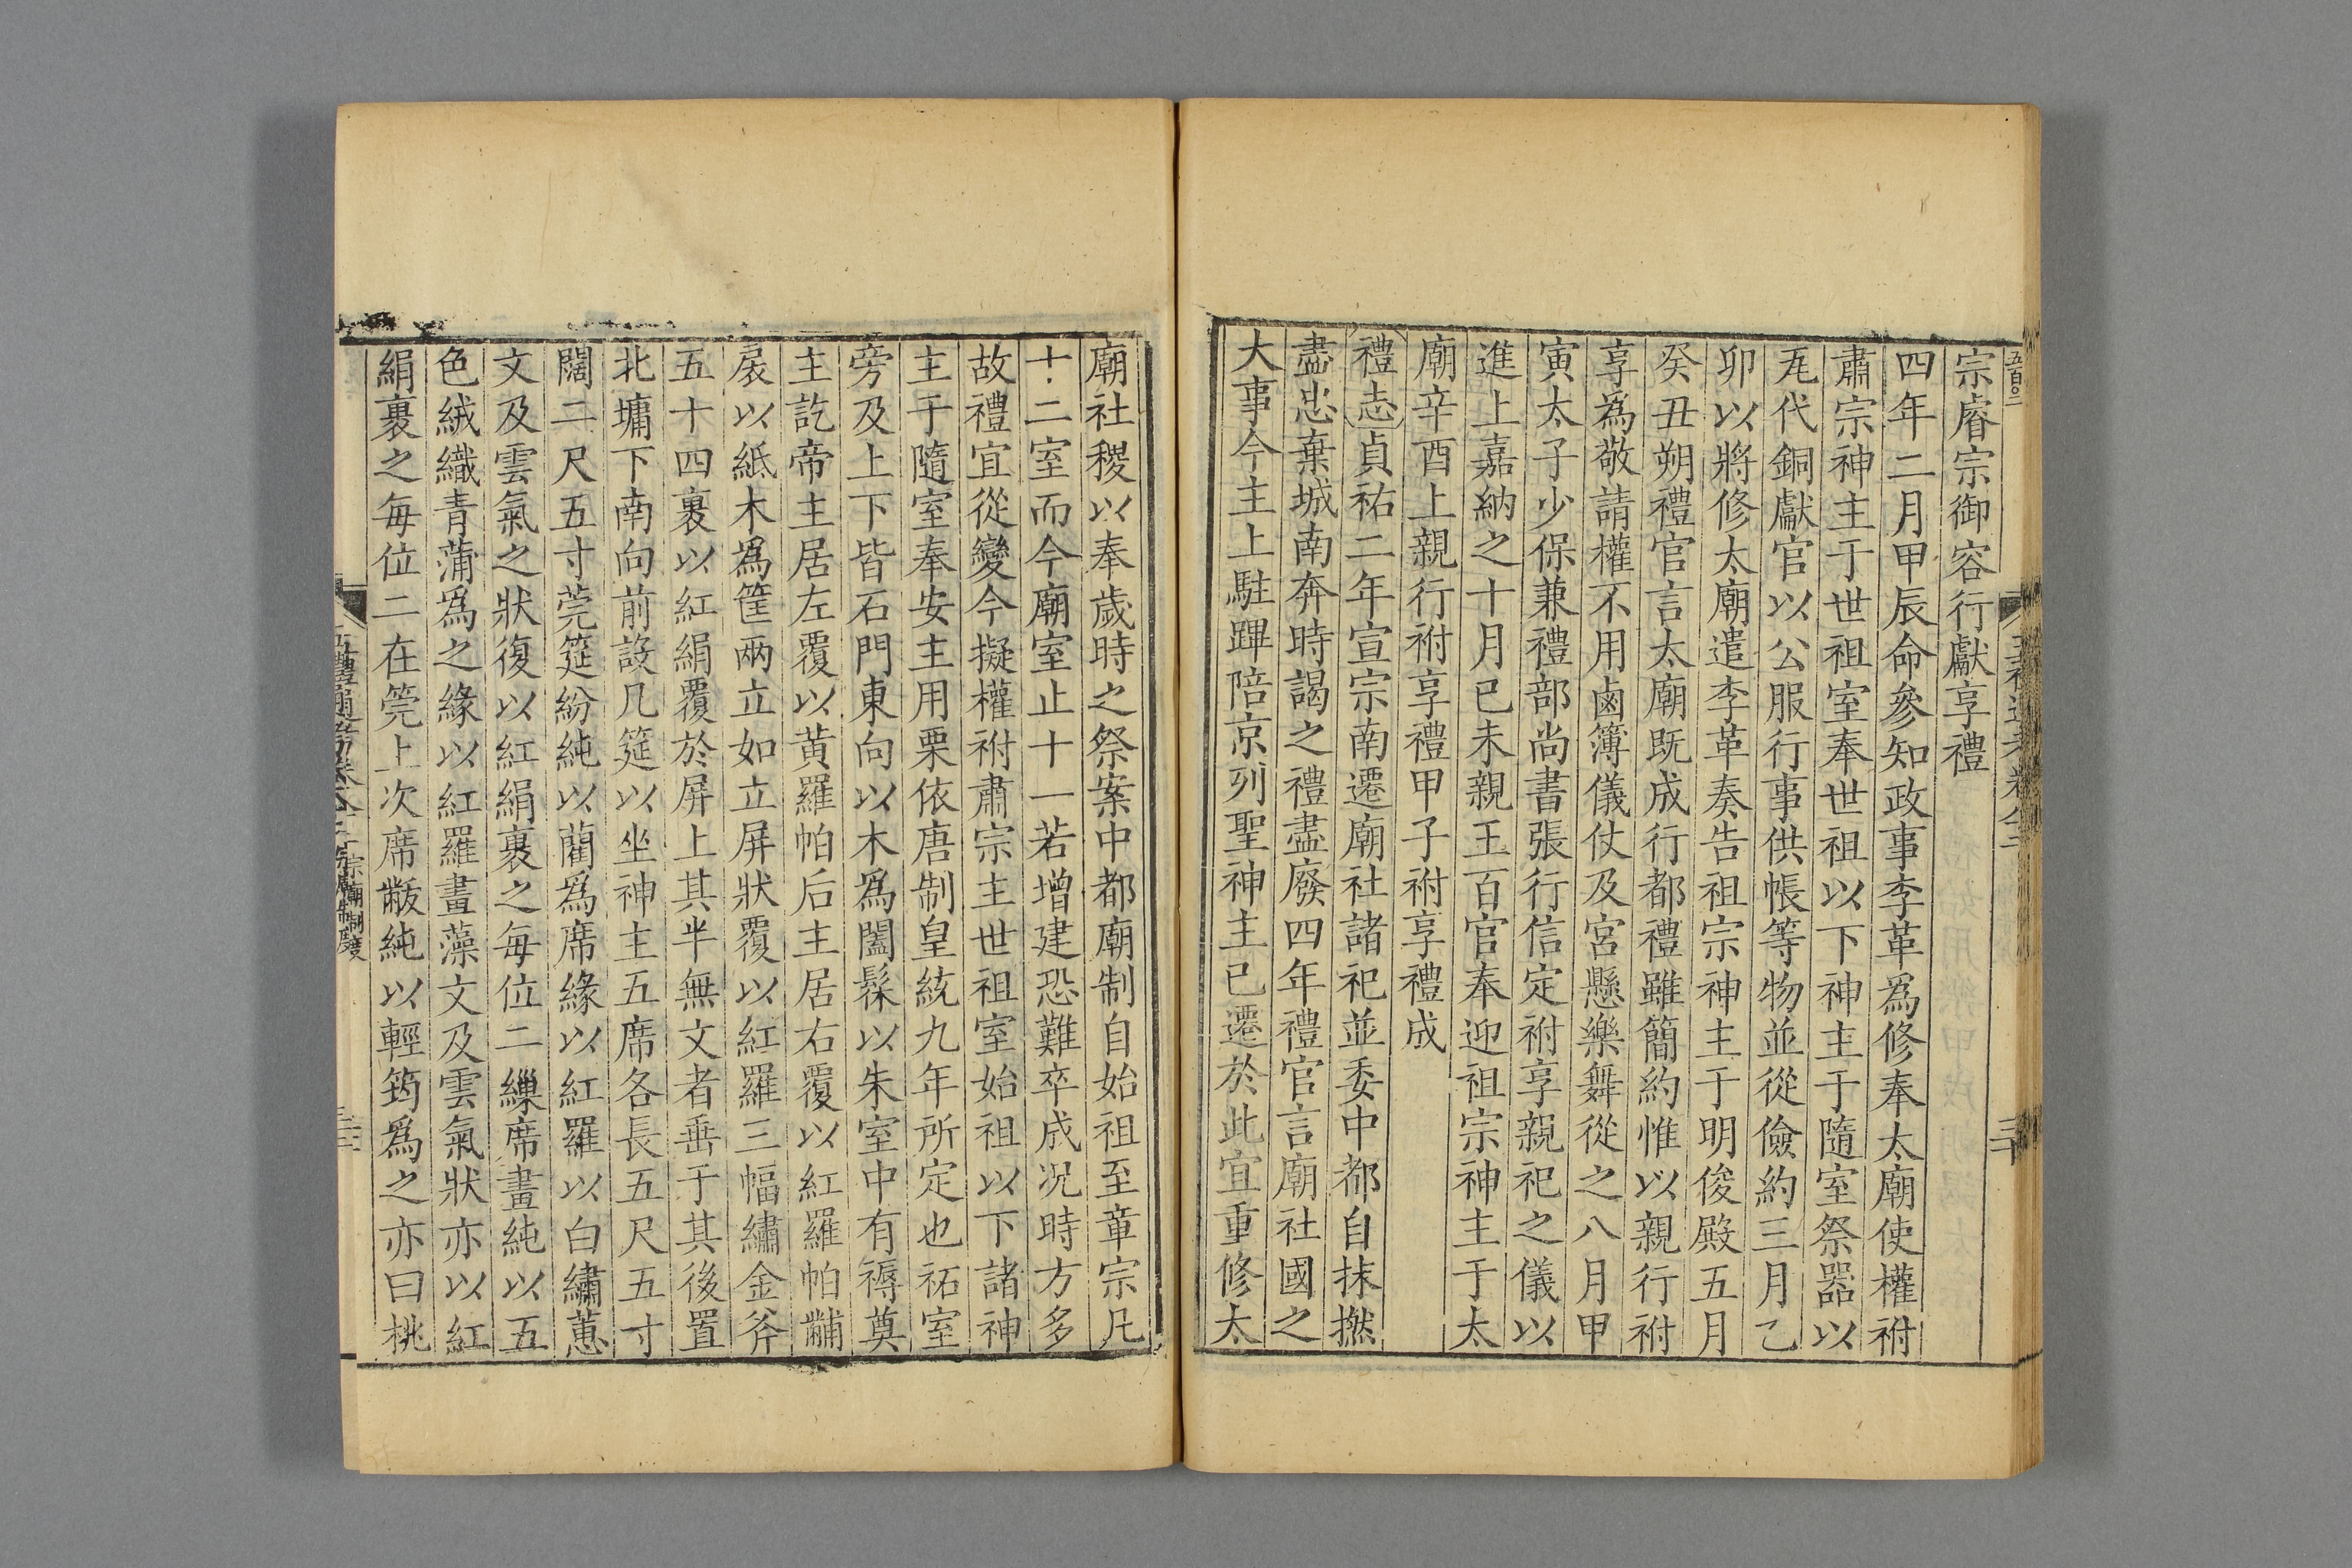 宗睿宗御容行獻享禮
四年二月甲辰命參知政事李革爲修奉太廟使權祔
肅宗神主于世祖室奉世祖以下神主于隨室祭器以
瓦代銅獻官以公服行事供帳等物並從儉約三月乙
卯以將修太廟遣李革奏告祖宗神主于明俊殿五月
癸丑朔禮官言太廟既成行都禮雖簡約惟以親行祔
享爲敬請權不用鹵簿儀仗及宮懸樂舞從之八月甲
寅太子少保兼禮部尚書張行信定祔享親祀之儀以
進上嘉納之十月己未親王百官奉迎祖宗神主于太
廟辛酉上親行祔享禮甲子祔享禮成
禮志貞祐二年宣宗南遷廟社諸祀並委中都自抹撚
盡忠棄城南奔時謁之禮盡廢四年禮官言廟社國之
大事今主上駐蹕陪京列聖神主已遷於此宜重修太
廟社稷以奉歲時之祭案中都廟制自始祖至章宗凡
十二室而今廟室止十一若增建恐難卒成況時方多
故禮宜從變今擬權祔肅宗主世祖室始祖以下諸神
主于隨室奉安主用栗依唐制皇統九年所定也祏室
旁及上下皆石門東向以木爲闔髹以朱室中有褥奠
主訖帝主居左覆以黃羅帕后主居右覆以紅羅帕黼
扆以紙木爲筐兩立如立屏狀覆以紅羅三幅繡金斧
五十四裹以紅絹覆於屏上其半無文者垂于其後置
北墉下南向前設几筵以坐神主五席各長五尺五寸
闊二尺五寸莞筵紛純以藺爲席緣以紅羅以白繡蕙
文及雲氣之狀復以紅絹裹之每位二繅席畫純以五
色絨織青蒲爲之緣以紅羅畫藻文及雲氣狀亦以紅
絹裹之每位二在筦上次席黻純以輕筠爲之亦曰桃